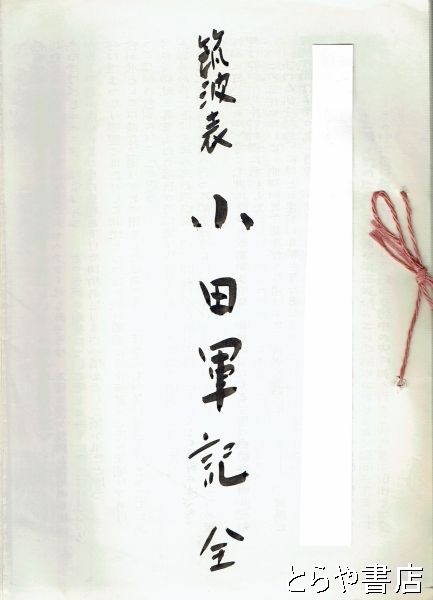 筑波表 小田軍記 全
とらや書店